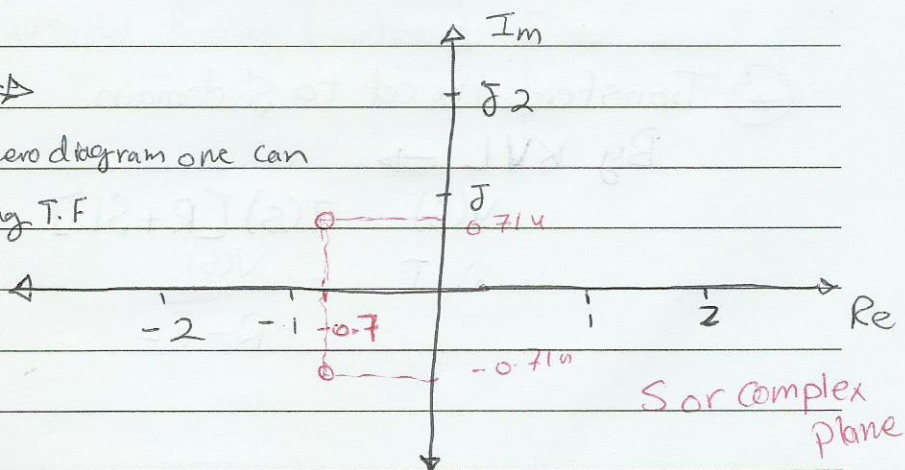 Im
J2
ero diagram one can
J
g T.F
0.714
-2 -1 -0.7 1 2 Re
-0.714
S or complex
plane